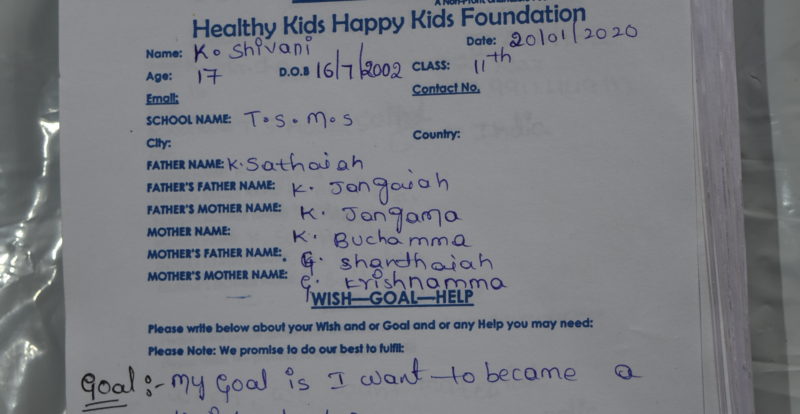 Healthy Kids Happy Kids Foundation
Name: K. Shivani Date: 20/01/2020
Age: 17 D.O.B 16/7/2002 CLASS: 11th
Email: Contact No.
SCHOOL NAME: T.S.M.S
City: Country:
FATHER NAME: K. Sathaiah
FATHER'S FATHER NAME: K. Jangaiah
FATHER'S MOTHER NAME: K. Jangama
MOTHER NAME: K. Buchamma
MOTHER'S FATHER NAME: G. Shardhaiah
MOTHER'S MOTHER NAME: G. Krishnamma
WISH—GOAL—HELP
Please write below about your Wish and or Goal and or any Help you may need:
Please Note: We promise to do our best to fulfil:
Goal:- My Goal is I want to became a